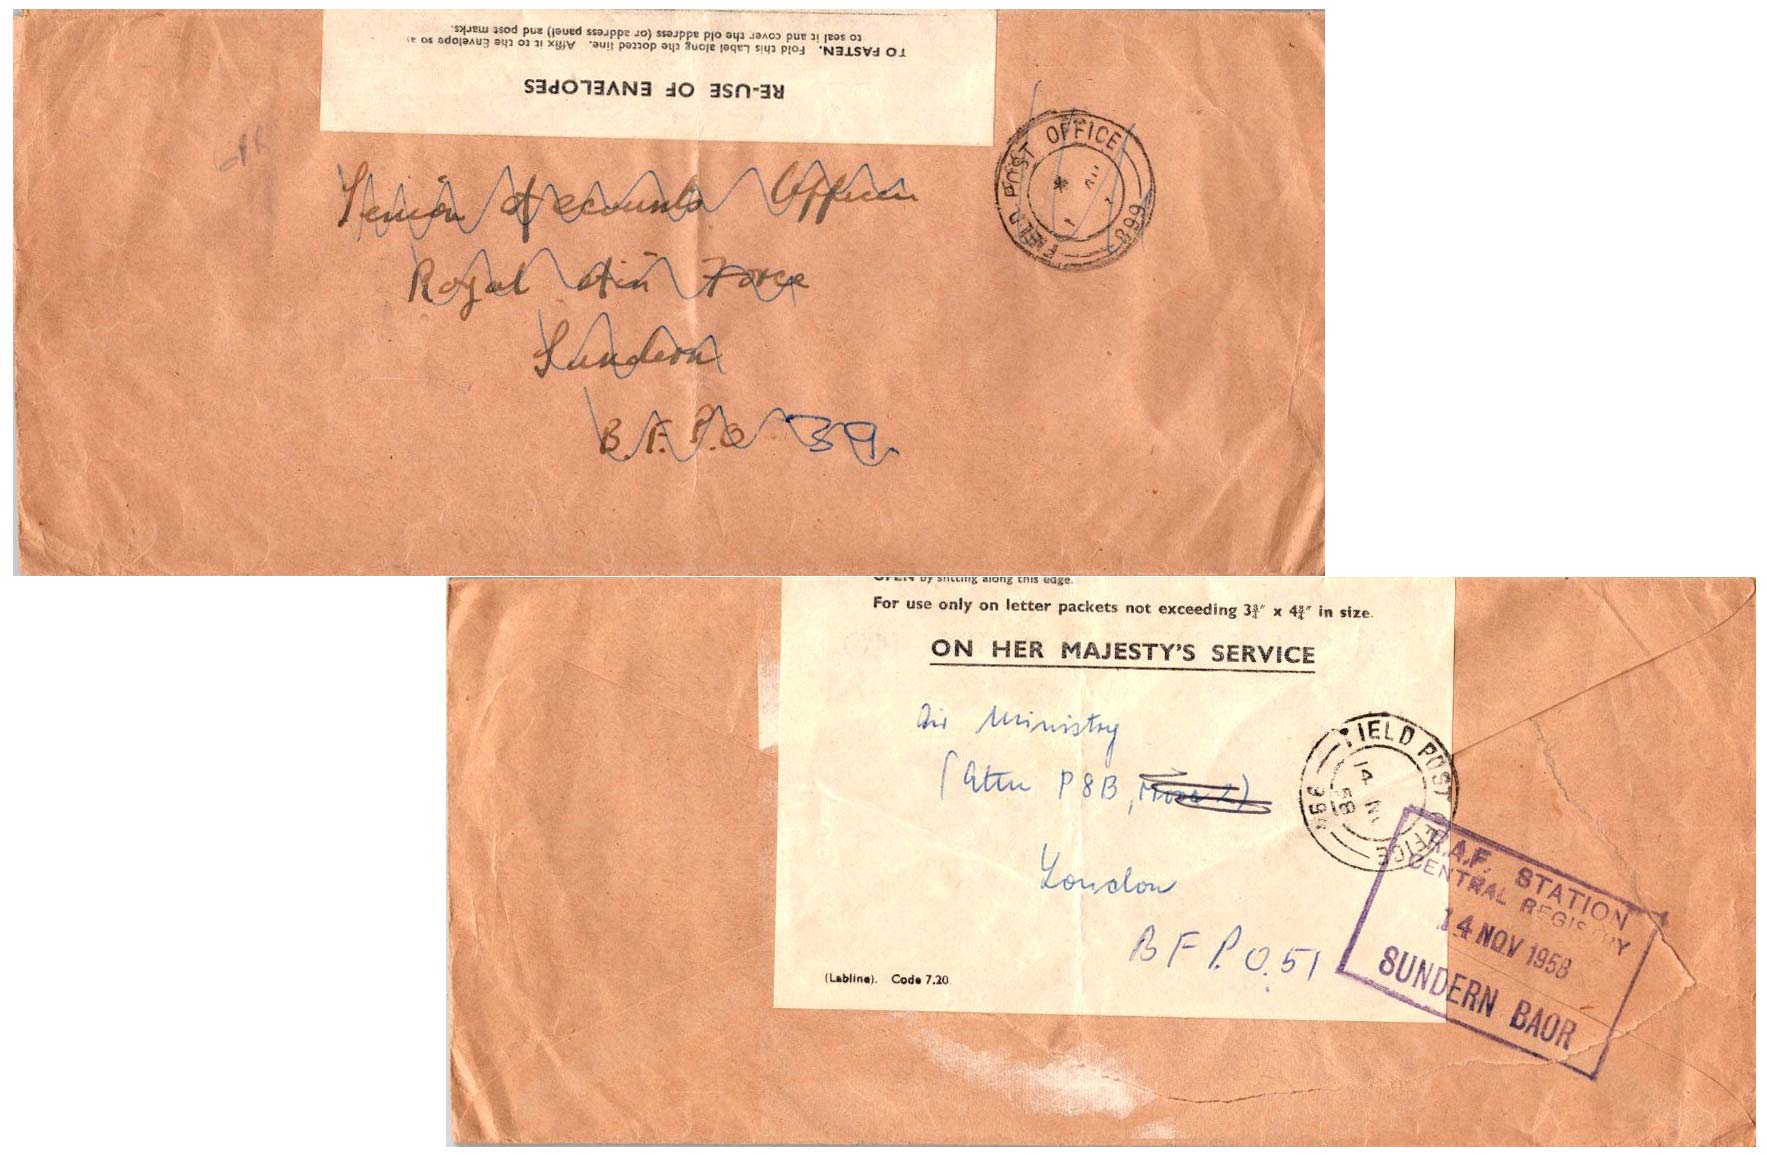 to seal it and cover the old address (or address panel) and post marks.
TO FASTEN. Fold this Label along the dotted line. Affix it to the Envelope so as
RE-USE OF ENVELOPES
FIELD POST OFFICE
Senior Accounts Officer
Royal Air Force
Sundern
B.F.P.O 39
by slitting along this edge.
For use only on letter packets not exceeding 3¾" x 4¾" in size.
ON HER MAJESTY'S SERVICE
Air Ministry
(Attn P8B,
London
B F P.O. 51
(Labline). Code 7.20.
FIELD POST OFFICE
14 NO
58
R.A.F. STATION
CENTRAL REGISTRY
14 NOV 1958
SUNDERN BAOR